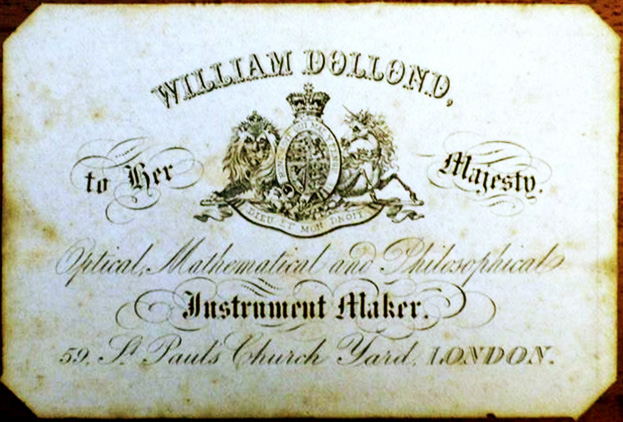 WILLIAM DOLLOND,
to Her Majesty.
DIEU ET MON DROIT
Optical, Mathematical and Philosophical
Instrument Maker.
59, St Paul's Church Yard, LONDON.